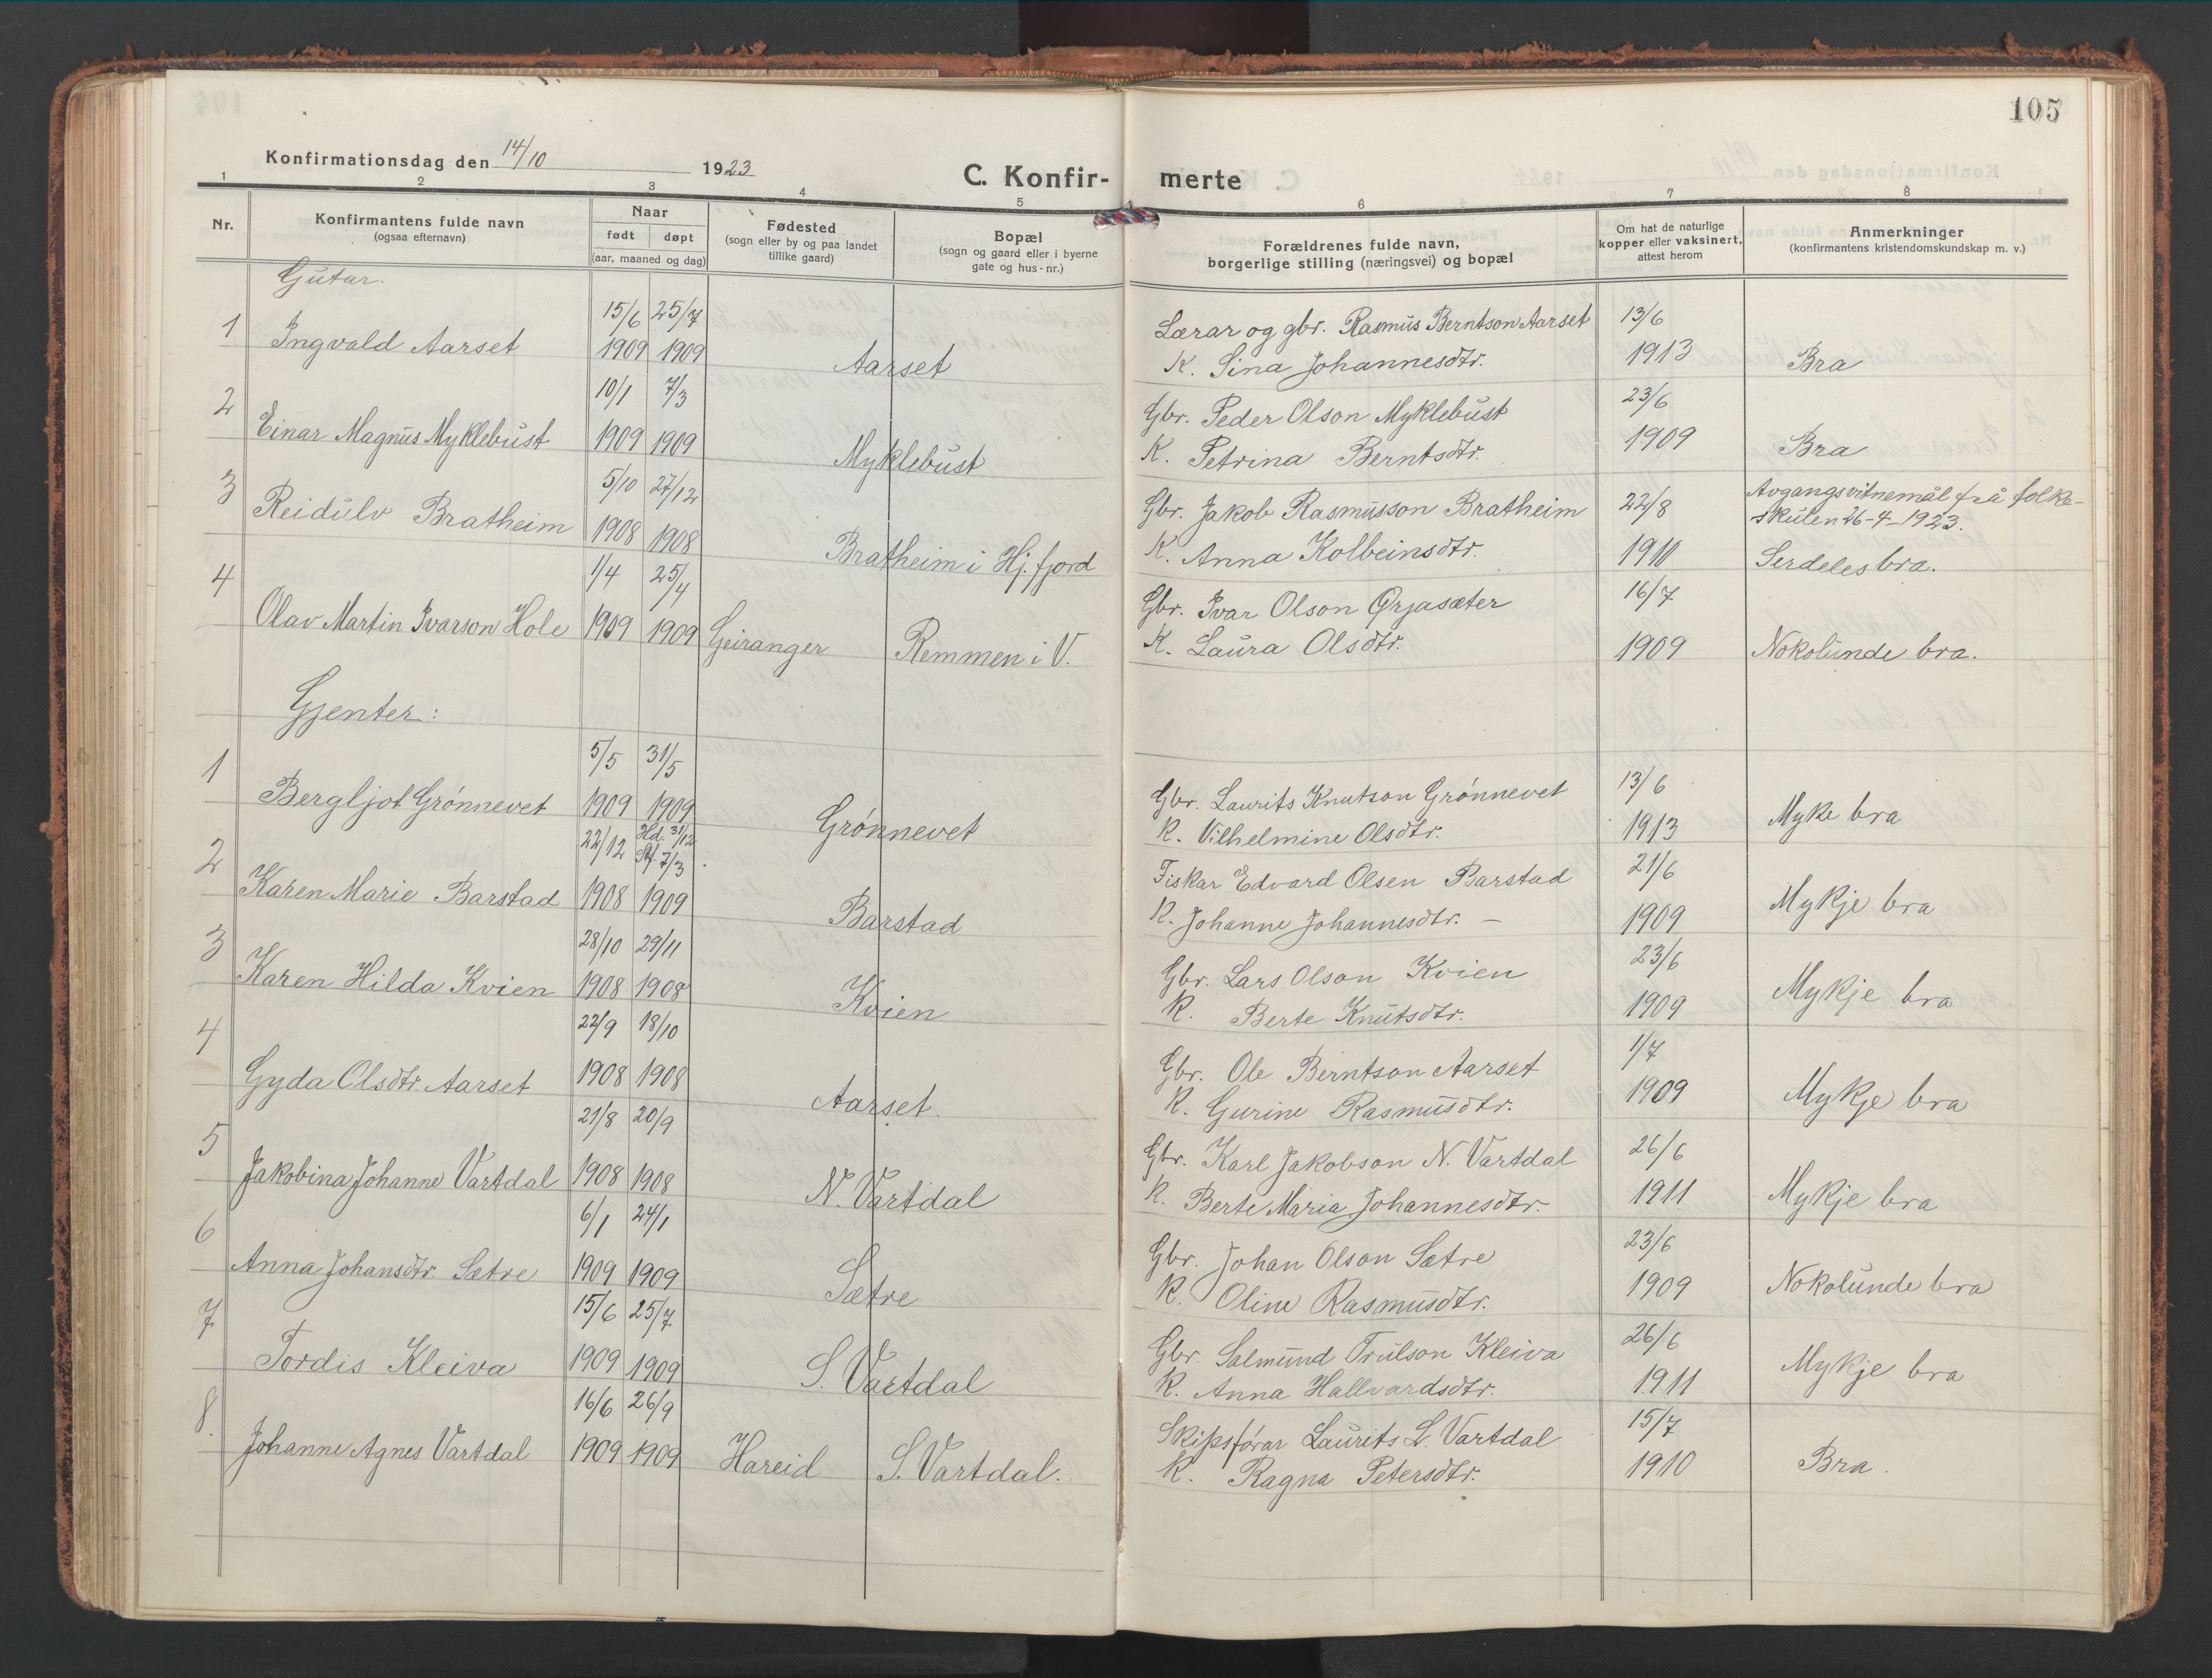 105
Konfirmationsdag den 14/10 1923
C. Konfir- merte
1 2 3 4 5 6 7 8
Nr.
Konfirmantens fulde navn
(ogsaa efternavn)
Naar
født døpt
(aar, maaned og dag)
Fødested
(sogn eller by og paa landet
tillike gaard)
Bopæl
(sogn og gaard eller i byerne
gate og hus-nr.)
Forældrenes fulde navn,
borgerlige stilling (næringsvei) og bopæl
Om hat de naturlige
kopper eller vaksinert,
attest herom
Anmerkninger
(konfirmantens kristendomskundskap m. v.)
Gutar.
1 15/6 25/7 Lærar og gbr. Rasmus Berntson Aarset 13/6
Ingvald Aarset 1909 1909 Aarset K. Sina Johannesdtr. 1913 Bra
2 10/1 7/3 Gbr. Peder Olson Myklebust 23/6
Einar Magnus Myklebust 1909 1909 Myklebust K. Petrina Berntsdtr. 1909 Bra
3 5/10 27/12 Gbr. Jakob Rasmusson Bratheim 22/8 Avgangsvitnemål frå folke-
skulen 26-4-1923.
Reidulv Bratheim 1908 1908 Bratheim i Hj.fjord K. Anna Kolbeinsdtr. 1910 Serdeles bra.
4 1/4 25/4 Gbr. Ivar Olson Ørjasæter 16/7
Olav Martin Ivarson Hole 1909 1909 Geiranger Remmen i V. K. Laura Olsdtr. 1909 Nokolunde bra.
Gjenter:
1 5/5 31/5 Gbr. Laurits Knutson Grønnevet 13/6
Bergljot Grønnevet 1909 1909 Grønnevet K. Vilhelmine Olsdtr. 1913 Myke bra
2 22/12 Hd. 31/12 Stf. 7/3 Fiskar Edvard Olsen Barstad 21/6
Karen Marie Barstad 1908 1909 Barstad K. Johanne Johannesdtr. – 1909 Mykje bra
3 28/10 29/11 Gbr. Lars Olson Kvien 23/6
Karen Hilda Kvien 1908 1908 Kvien K. Berte Knutsdtr. 1909 Mykje bra
4 22/9 18/10 Gbr. Ole Berntson Aarset 1/7
Gyda Olsdtr. Aarset 1908 1908 Aarset. K. Gurine Rasmusdtr. 1909 Mykje bra
5 21/8 20/9 Gbr. Karl Jakobson N. Vartdal 26/6
Jakobina Johanne Vartdal 1908 1908 N. Vartdal K. Berte Maria Johannesdtr. 1911 Mykje bra
6 6/1 24/1 Gbr. Johan Olson Sætre 23/6
Anna Johansdtr. Sætre 1909 1909 Sætre K. Oline Rasmusdtr. 1909 Nokolunde bra
7 15/6 25/7 Gbr. Salmund Trulson Kleiva 26/6
Tordis Kleiva 1909 1909 S. Vartdal K. Anna Hallvardsdtr. 1911 Mykje bra
8. 16/6 26/9 Skipsførar Laurits L. Vartdal 15/7
Johanne Agnes Vartdal 1909 1909 Hareid S. Vartdal. K. Ragna Petersdtr. 1910 Bra.